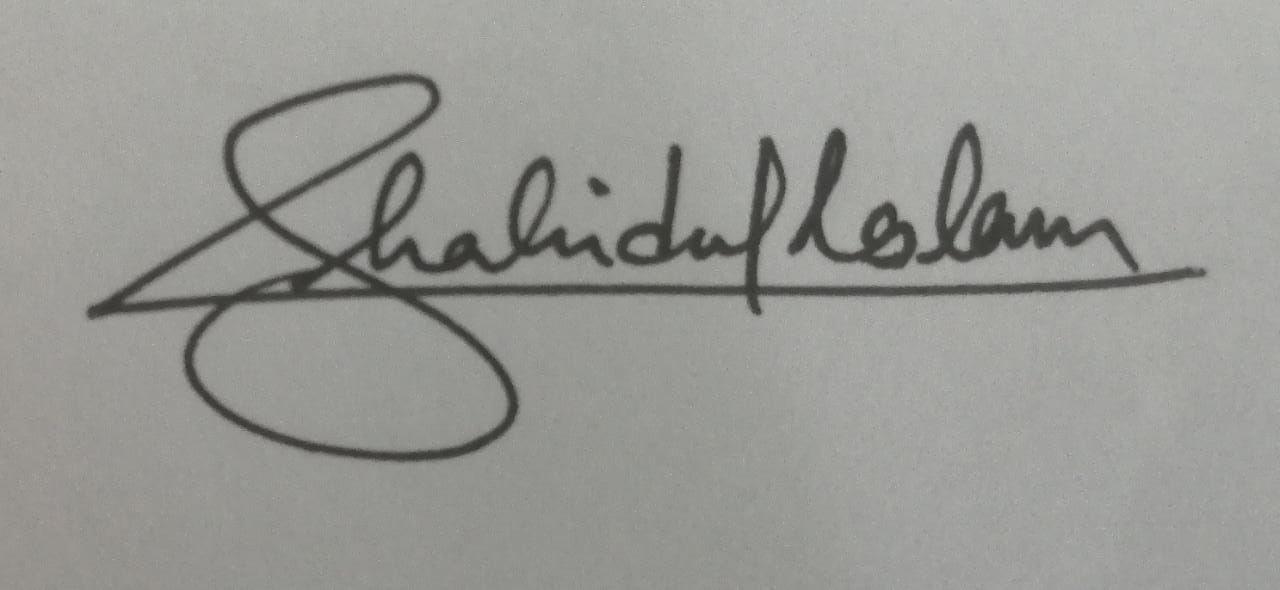 Shahidul Islam